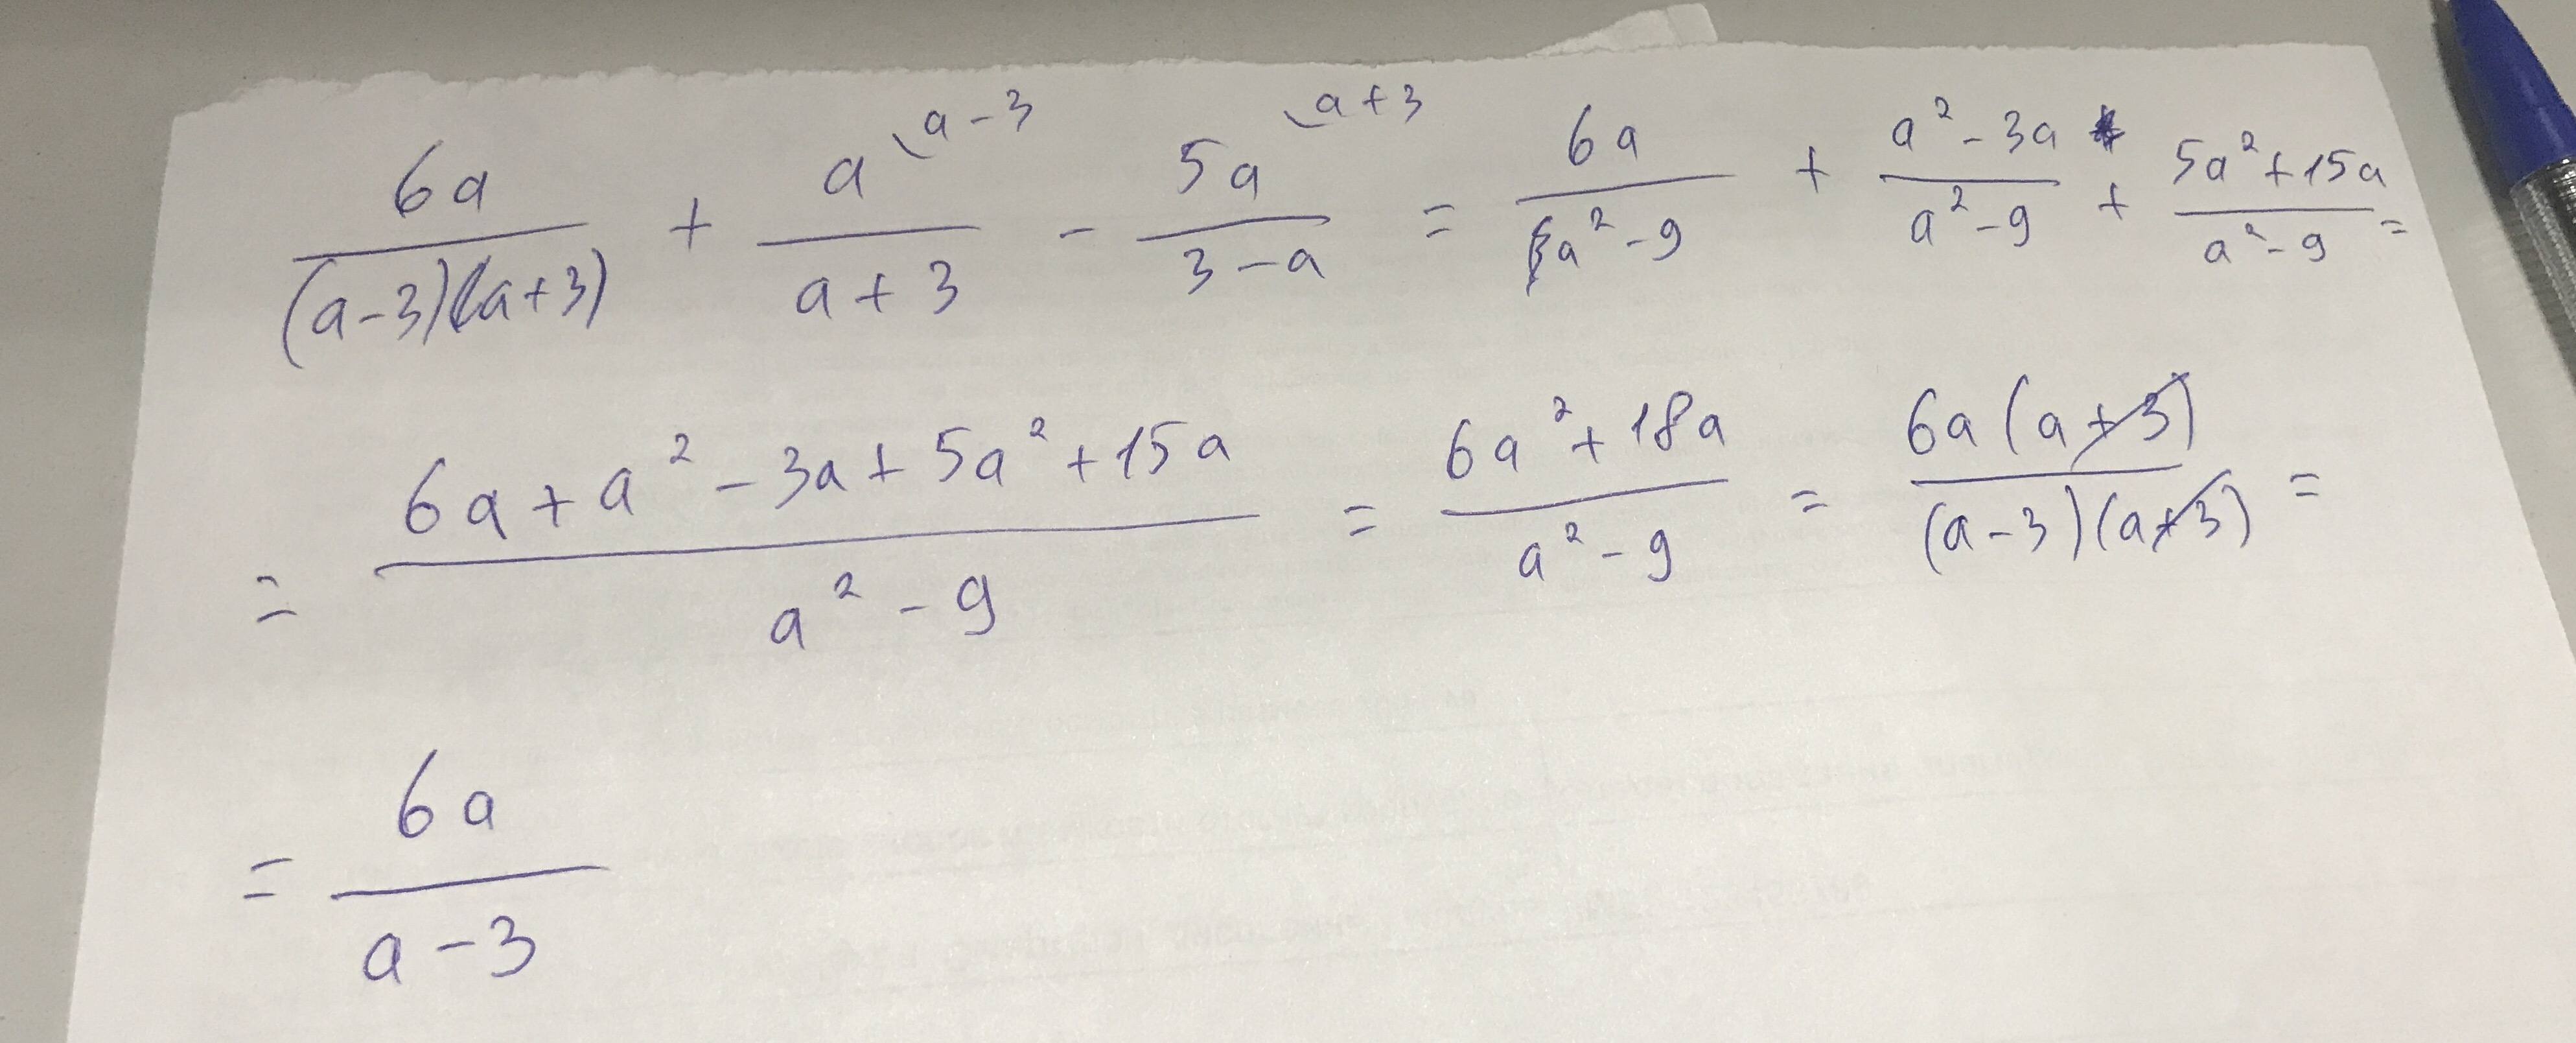 6a/((a-3)(a+3)) + a\a-3/(a+3) - 5a\a+3/(3-a) = 6a/(a²-9) + (a²-3a)/(a²-9) + (5a²+15a)/(a²-9) =
= (6a+a²-3a+5a²+15a)/(a²-9) = (6a²+18a)/(a²-9) = 6a(a+3)/((a-3)(a+3)) =
= 6a/(a-3)